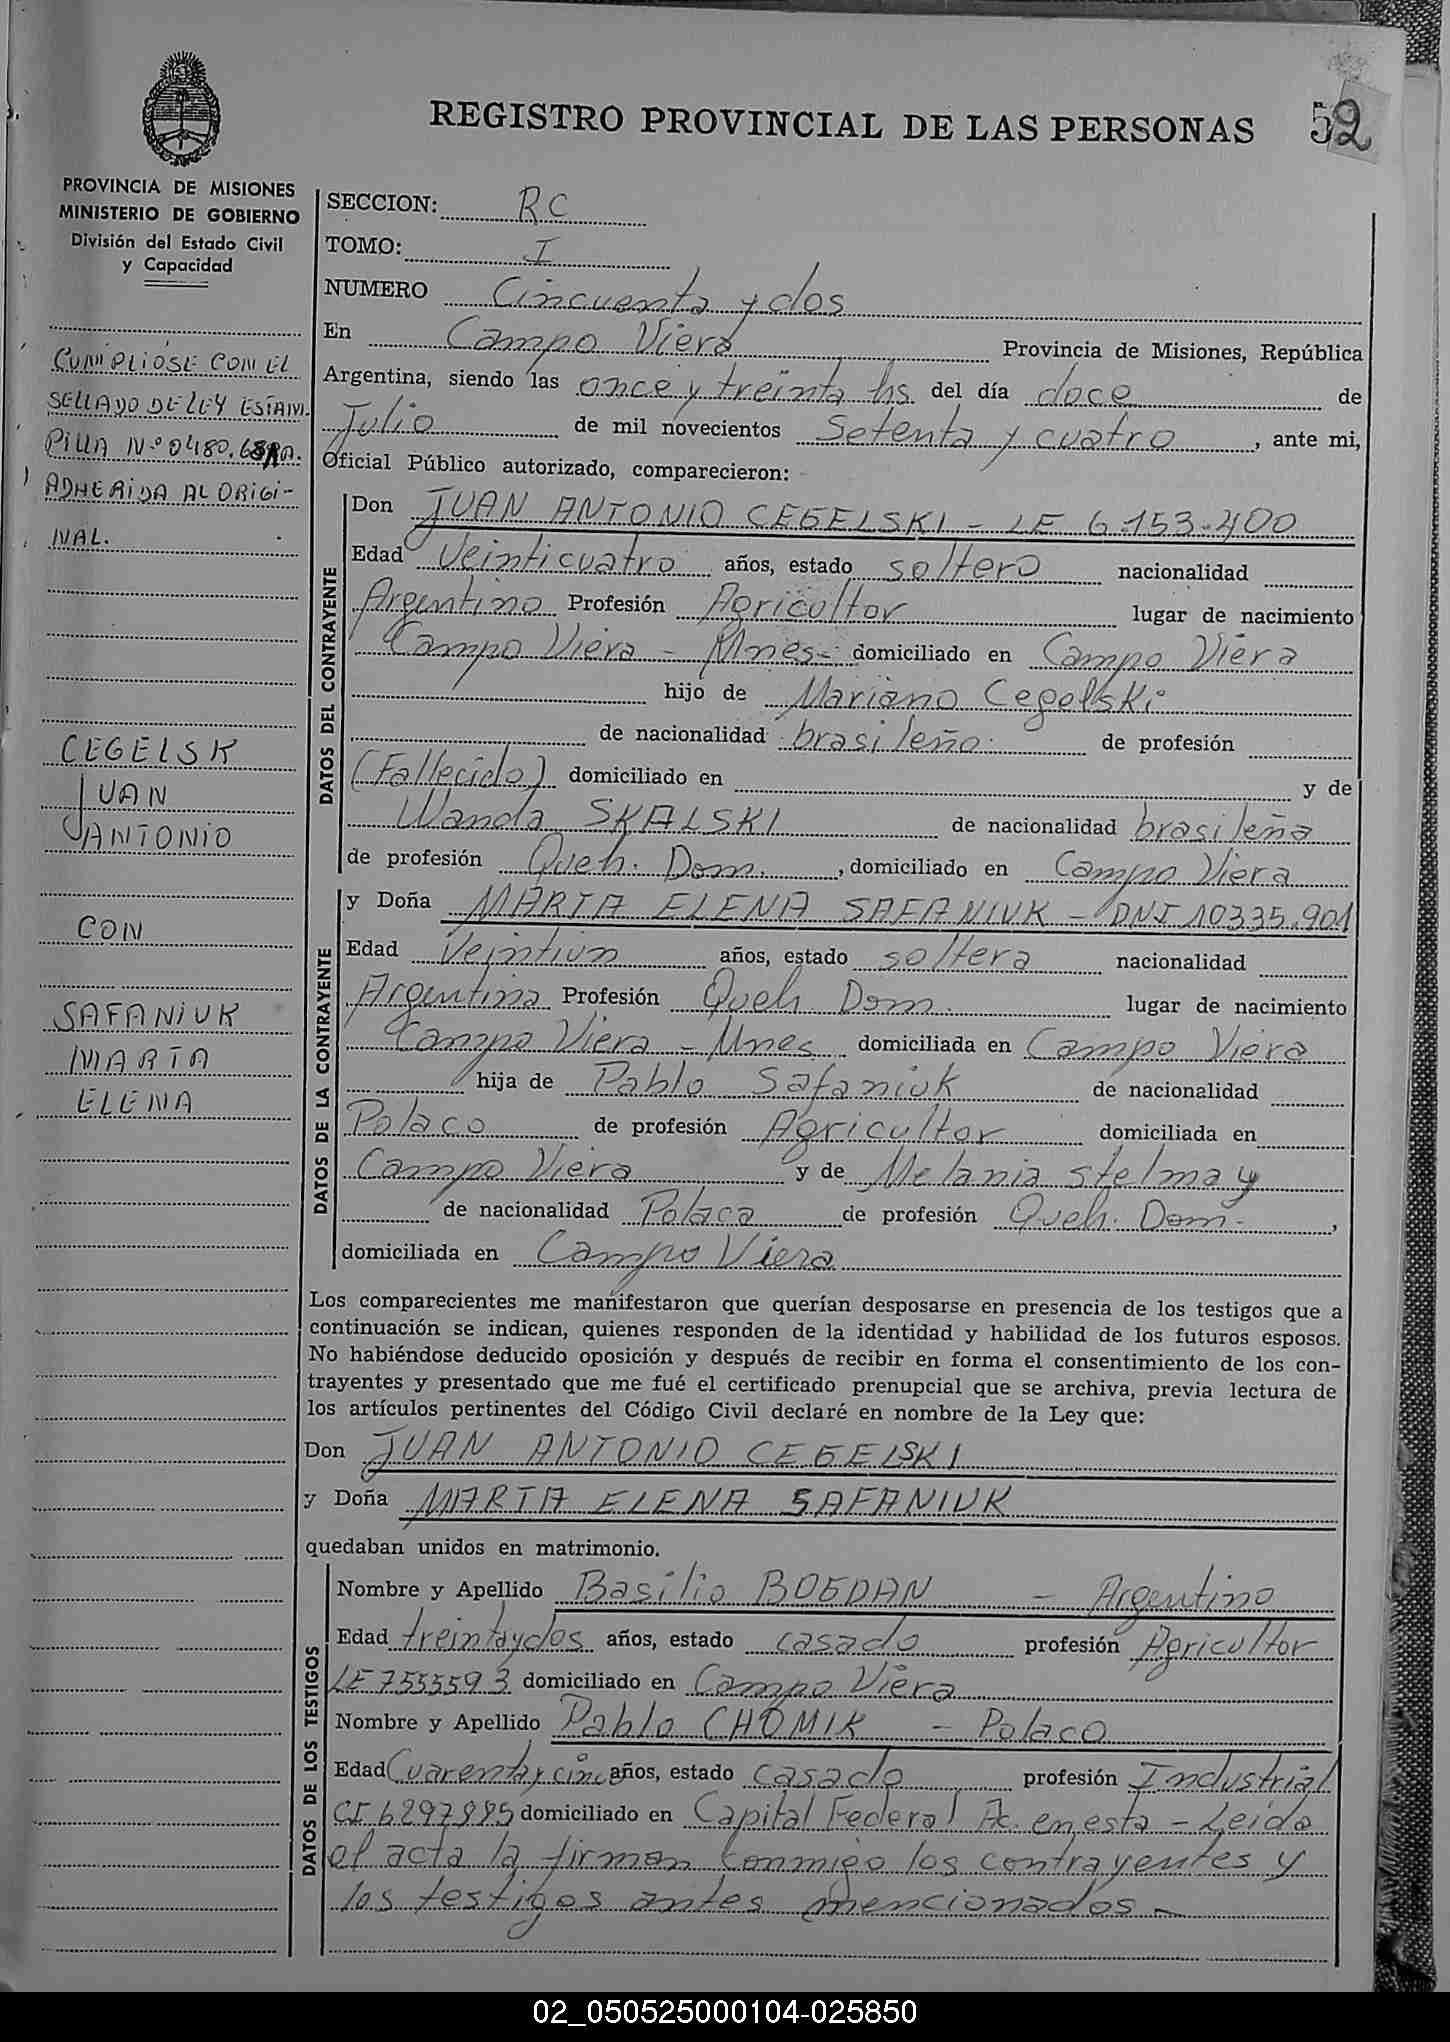 REGISTRO PROVINCIAL DE LAS PERSONAS
52
PROVINCIA DE MISIONES
MINISTERIO DE GOBIERNO
División del Estado Civil
y Capacidad
CUMPLIÓSE CON EL
SELLADO DE LEY ESTAM-
PILLA Nº 0480.
ADHERIDA AL ORIGI-
NAL.
CEGELSK
JUAN
ANTONIO
CON
SAFANIUK
MARTA
ELENA
SECCION: RC
TOMO: I
NUMERO Cincuenta y dos
En Campo Viera Provincia de Misiones, República
Argentina, siendo las once y treinta hs. del día doce de
Julio de mil novecientos Setenta y cuatro, ante mi,
Oficial Público autorizado, comparecieron:
DATOS DEL CONTRAYENTE
Don JUAN ANTONIO CEGELSKI - LE 6.153.400
Edad Veinticuatro años, estado soltero nacionalidad
Argentino Profesión Agricultor lugar de nacimiento
Campo Viera - Mnes- domiciliado en Campo Viera
hijo de Mariano Cegelski
de nacionalidad brasileño de profesión
(Fallecido) domiciliado en y de
Wanda SKALSKI de nacionalidad brasileña
de profesión Queh. Dom., domiciliado en Campo Viera
DATOS DE LA CONTRAYENTE
y Doña MARTA ELENA SAFANIUK - DNI 10335.901
Edad Veintiun años, estado soltera nacionalidad
Argentina Profesión Queh Dom. lugar de nacimiento
Campo Viera - Mnes domiciliada en Campo Viera
hija de Pablo Safaniuk de nacionalidad
Polaco de profesión Agricultor domiciliada en
Campo Viera y de Melania Stelmay
de nacionalidad Polaca de profesión Queh. Dom.,
domiciliada en Campo Viera
Los comparecientes me manifestaron que querían desposarse en presencia de los testigos que a
continuación se indican, quienes responden de la identidad y habilidad de los futuros esposos.
No habiéndose deducido oposición y después de recibir en forma el consentimiento de los con-
trayentes y presentado que me fué el certificado prenupcial que se archiva, previa lectura de
los artículos pertinentes del Código Civil declaré en nombre de la Ley que:
Don JUAN ANTONIO CEGELSKI
y Doña MARTA ELENA SAFANIUK
quedaban unidos en matrimonio.
DATOS DE LOS TESTIGOS
Nombre y Apellido Basilio BOGDAN - Argentino
Edad treintaydos años, estado casado profesión Agricultor
LE 7555593 domiciliado en Campo Viera
Nombre y Apellido Pablo CHOMIK - Polaco
Edad Cuarenta y cinco años, estado casado profesión Industrial
CI domiciliado en Capital Federal Ac. en esta - Leida
el acta la firman conmigo los contrayentes y
los testigos antes mencionados -
02_050525000104-025850